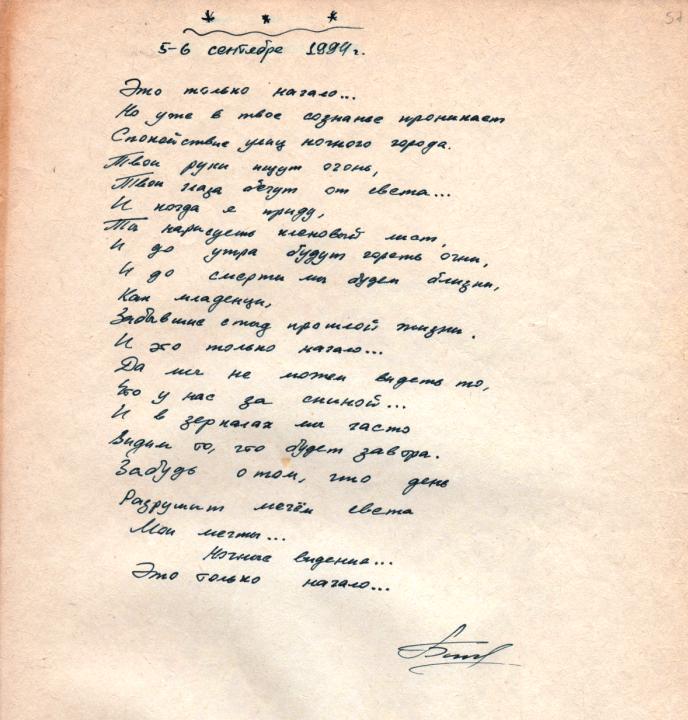 * * *
5-6 сентября 1994г.
Это только начало...
Но уже в твое сознанье проникает
Спокойствие улиц ночного города.
Твои руки ищут огонь,
Твои глаза бегут от света...
И когда я приду,
Ты нарисуешь кленовый лист,
И до утра будут гореть огни,
И до смерти мы будем близки,
Как младенцы,
Забывшие стыд прошлой жизни.
И это только начало...
Да мы не можем видеть то,
Что у нас за спиной...
И в зеркалах мы часто
Видим то, что будет завтра.
Забудь о том, что день
Разрушит мечём света
Мои мечты...
Ночные видение...
Это только начало...
57